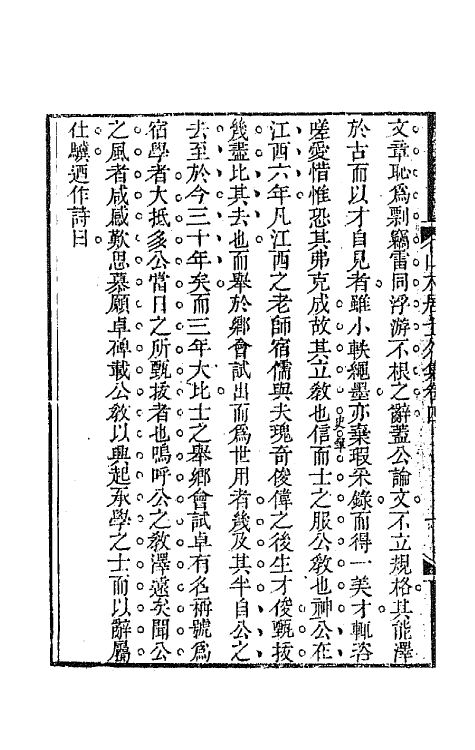 文章恥爲剽竊雷同浮游不根之辭蓋公論文不立規格其能澤
於古而以才自見者雖小軼繩墨亦棄瑕采錄而得一美才輒咨
嗟愛惜惟恐其弗克成故其立教也信而士之服公教也神公在
江西六年凡江西之老師宿儒與夫瑰奇俊偉之後生才俊甄拔
幾盡比其去也而舉於鄉會試出而爲世用者幾及其半自公之
去至於今三十年矣而三年大比士之舉鄉會試卓有名稱號爲
宿學者大抵多公當日之所甄拔者也嗚呼公之教澤遠矣聞公
之風者咸感歎思慕願卓碑載公教以興起承學之士而以辭屬
仕驥迺作詩曰
山木居士外集卷四